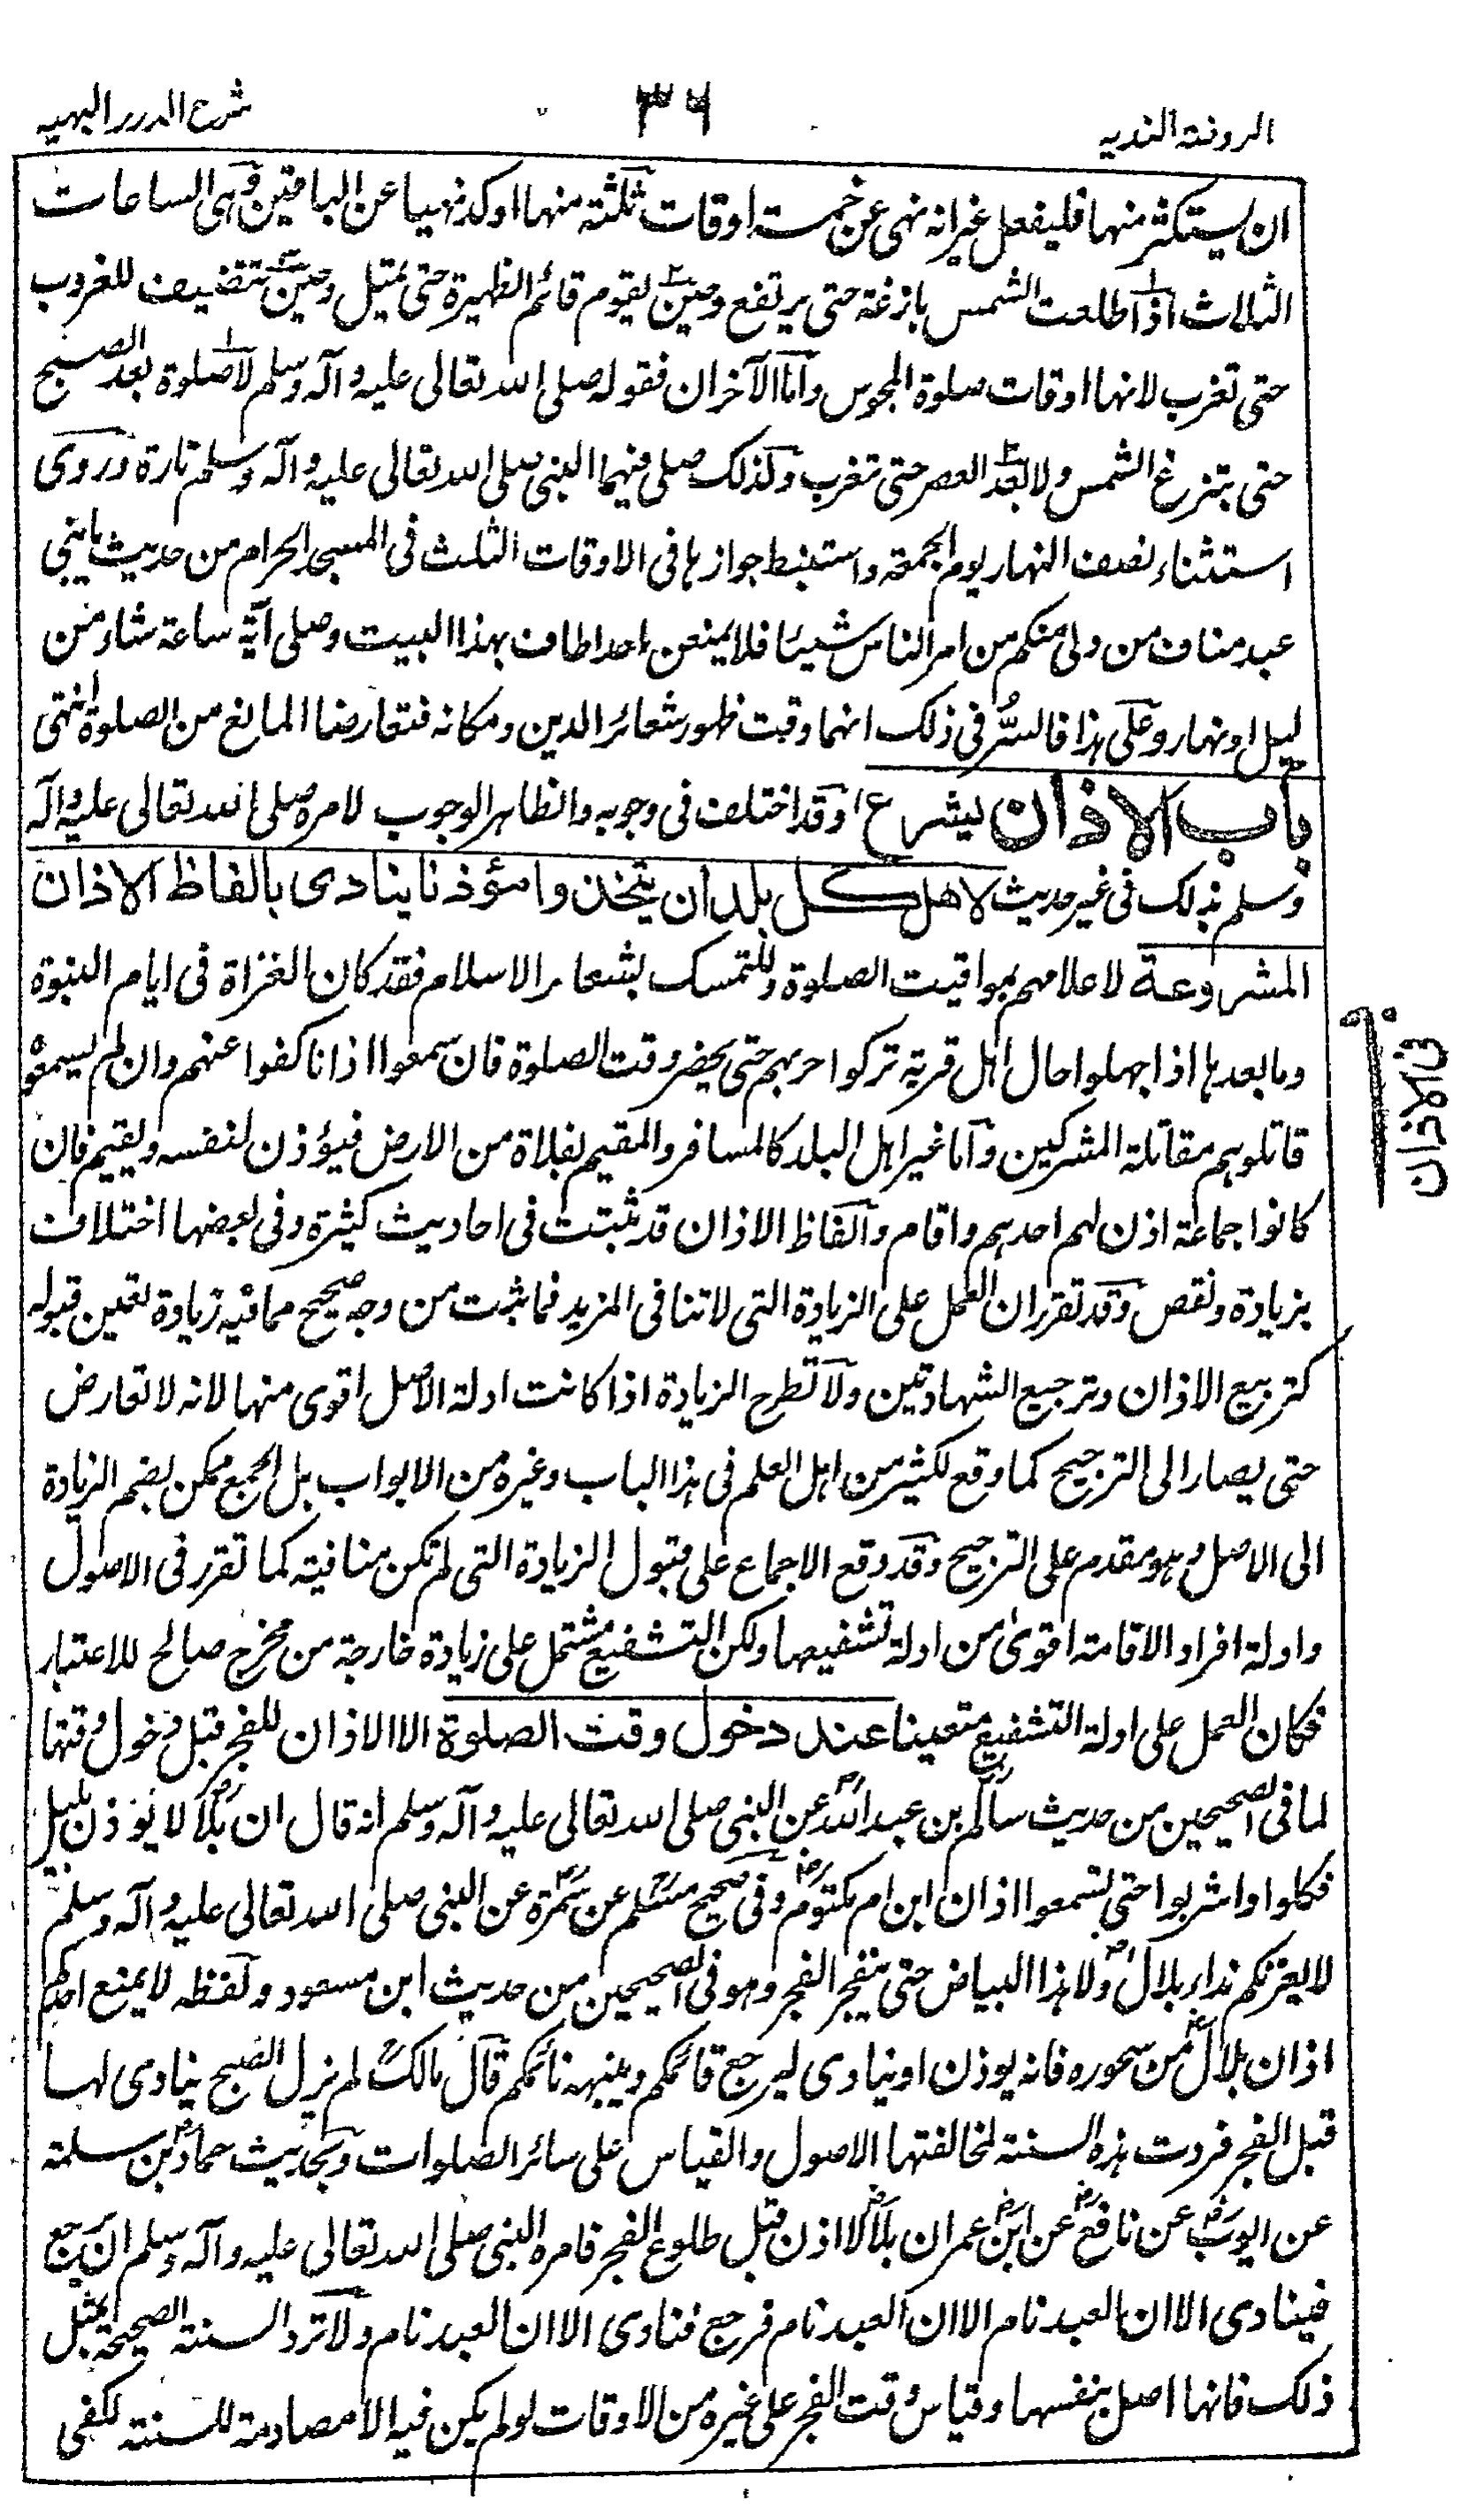 الروضة الندیہ ٣٦ شرح الدرر البهیہ
ان یستکثر منها فلیفعل غیر انه نهی عن خمسة اوقات ثلثة منها اوکد نهیا عن الباقین وهی الساعات
الثلاث اذا طلعت الشمس بازغة حتی یرتفع وحین یقوم قائم الظهیرة حتی یمیل وحین تتضیف للغروب
حتی تغرب لانها اوقات صلوة المجوس واما الآخران فقوله صلی الله تعالی علیه وآله وسلم لا صلوة بعد الصبح
حتی تبزغ الشمس ولا بعد العصر حتی تغرب وکذلک صلی فیهما النبی صلی الله تعالی علیه وآله وسلم تارة وروی
استثناء نصف النهار یوم الجمعة واستنبط جوازها فی الاوقات الثلث فی المسجد الحرام من حدیث یا بنی
عبد مناف من ولی منکم من امر الناس شیئا فلا یمنعن احدا طاف بهذا البیت وصلی آیة ساعة شاء من
لیل او نهار وعلی هذا فالسر فی ذلک انهما وقت ظهور شعائر الدین ومکانه فتعارضا المانع من الصلوة انتهی
باب الاذان یشرع وقد اختلف فی وجوبه والظاهر الوجوب لامره صلی الله تعالی علیه وآله
وسلم بذلک فی غیر حدیث لاهل کل بلد ان یتخذوا مؤذنا ینادی بالفاظ الاذان
المشروعة لاعلامهم بمواقیت الصلوة وللتمسک بشعائر الاسلام فقد کان الغزاة فی ایام النبوة
وما بعدها اذا جهلوا حال اهل قریة ترکوا حربهم حتی یحضر وقت الصلوة فان سمعوا اذانا کفوا عنهم وان لم یسمعوا
باب الاذان
قاتلوهم مقاتلة المشرکین واما غیر اهل البلد کالمسافر والمقیم بفلاة من الارض فیؤذن لنفسه ویقیم فان
کانوا جماعة اذن لهم احدهم واقام والفاظ الاذان قد ثبتت فی احادیث کثیرة وفی بعضها اختلاف
بزیادة ونقص وقد تقرر ان العمل علی الزیادة التی لا تنافی المزید فما ثبت من وجه صحیح مما فیه زیادة تعین قبوله
کتربیع الاذان وترجیع الشهادتین ولا تطرح الزیادة اذا کانت ادلة الاصل اقوی منها لانه لا تعارض
حتی یصار الی الترجیح کما وقع لکثیر من اهل العلم فی هذا الباب وغیره من الابواب بل الجمع ممکن بضم الزیادة
الی الاصل وهو مقدم علی الترجیح وقد وقع الاجماع علی قبول الزیادة التی لم تکن منافیة کما تقرر فی الاصول
وادلة افراد الاقامة اقوی من ادلة تشفیعها ولکن التشفیع مشتمل علی زیادة خارجة من مخرج صالح للاعتبار
فکان العمل علی ادلة التشفیع متعینا عند دخول وقت الصلوة الا الاذان للفجر قبل دخول وقتها
لما فی الصحیحین من حدیث سالم بن عبد الله عن النبی صلی الله تعالی علیه وآله وسلم انه قال ان بلالا یؤذن بلیل
فکلوا واشربوا حتی تسمعوا اذان ابن ام مکتوم وفی صحیح مسلم عن سمرة عن النبی صلی الله تعالی علیه وآله وسلم
لا یغرنکم نداء بلال ولا هذا البیاض حتی ینفجر الفجر وهو فی الصحیحین من حدیث ابن مسعود ولفظه لا یمنع احدکم
اذان بلال من سحوره فانه یوذن او ینادی لیرجع قائمکم وینبه نائمکم قال مالک لم یزل الصبح ینادی لها
قبل الفجر فردت هذه السنة لمخالفتها الاصول والقیاس علی سائر الصلوات وبحدیث حماد بن سلمة
عن ایوب عن نافع عن ابن عمر ان بلالا اذن قبل طلوع الفجر فامره النبی صلی الله تعالی علیه وآله وسلم ان یرجع
فینادی الا ان العبد نام الا ان العبد نام فرجع فنادی الا ان العبد نام ولا ترد السنة الصحیحة بمثل
ذلک فانها اصل بنفسها وقیاس وقت الفجر علی غیره من الاوقات لو لم یکن فیه الا مصادمة للسنة لکفی